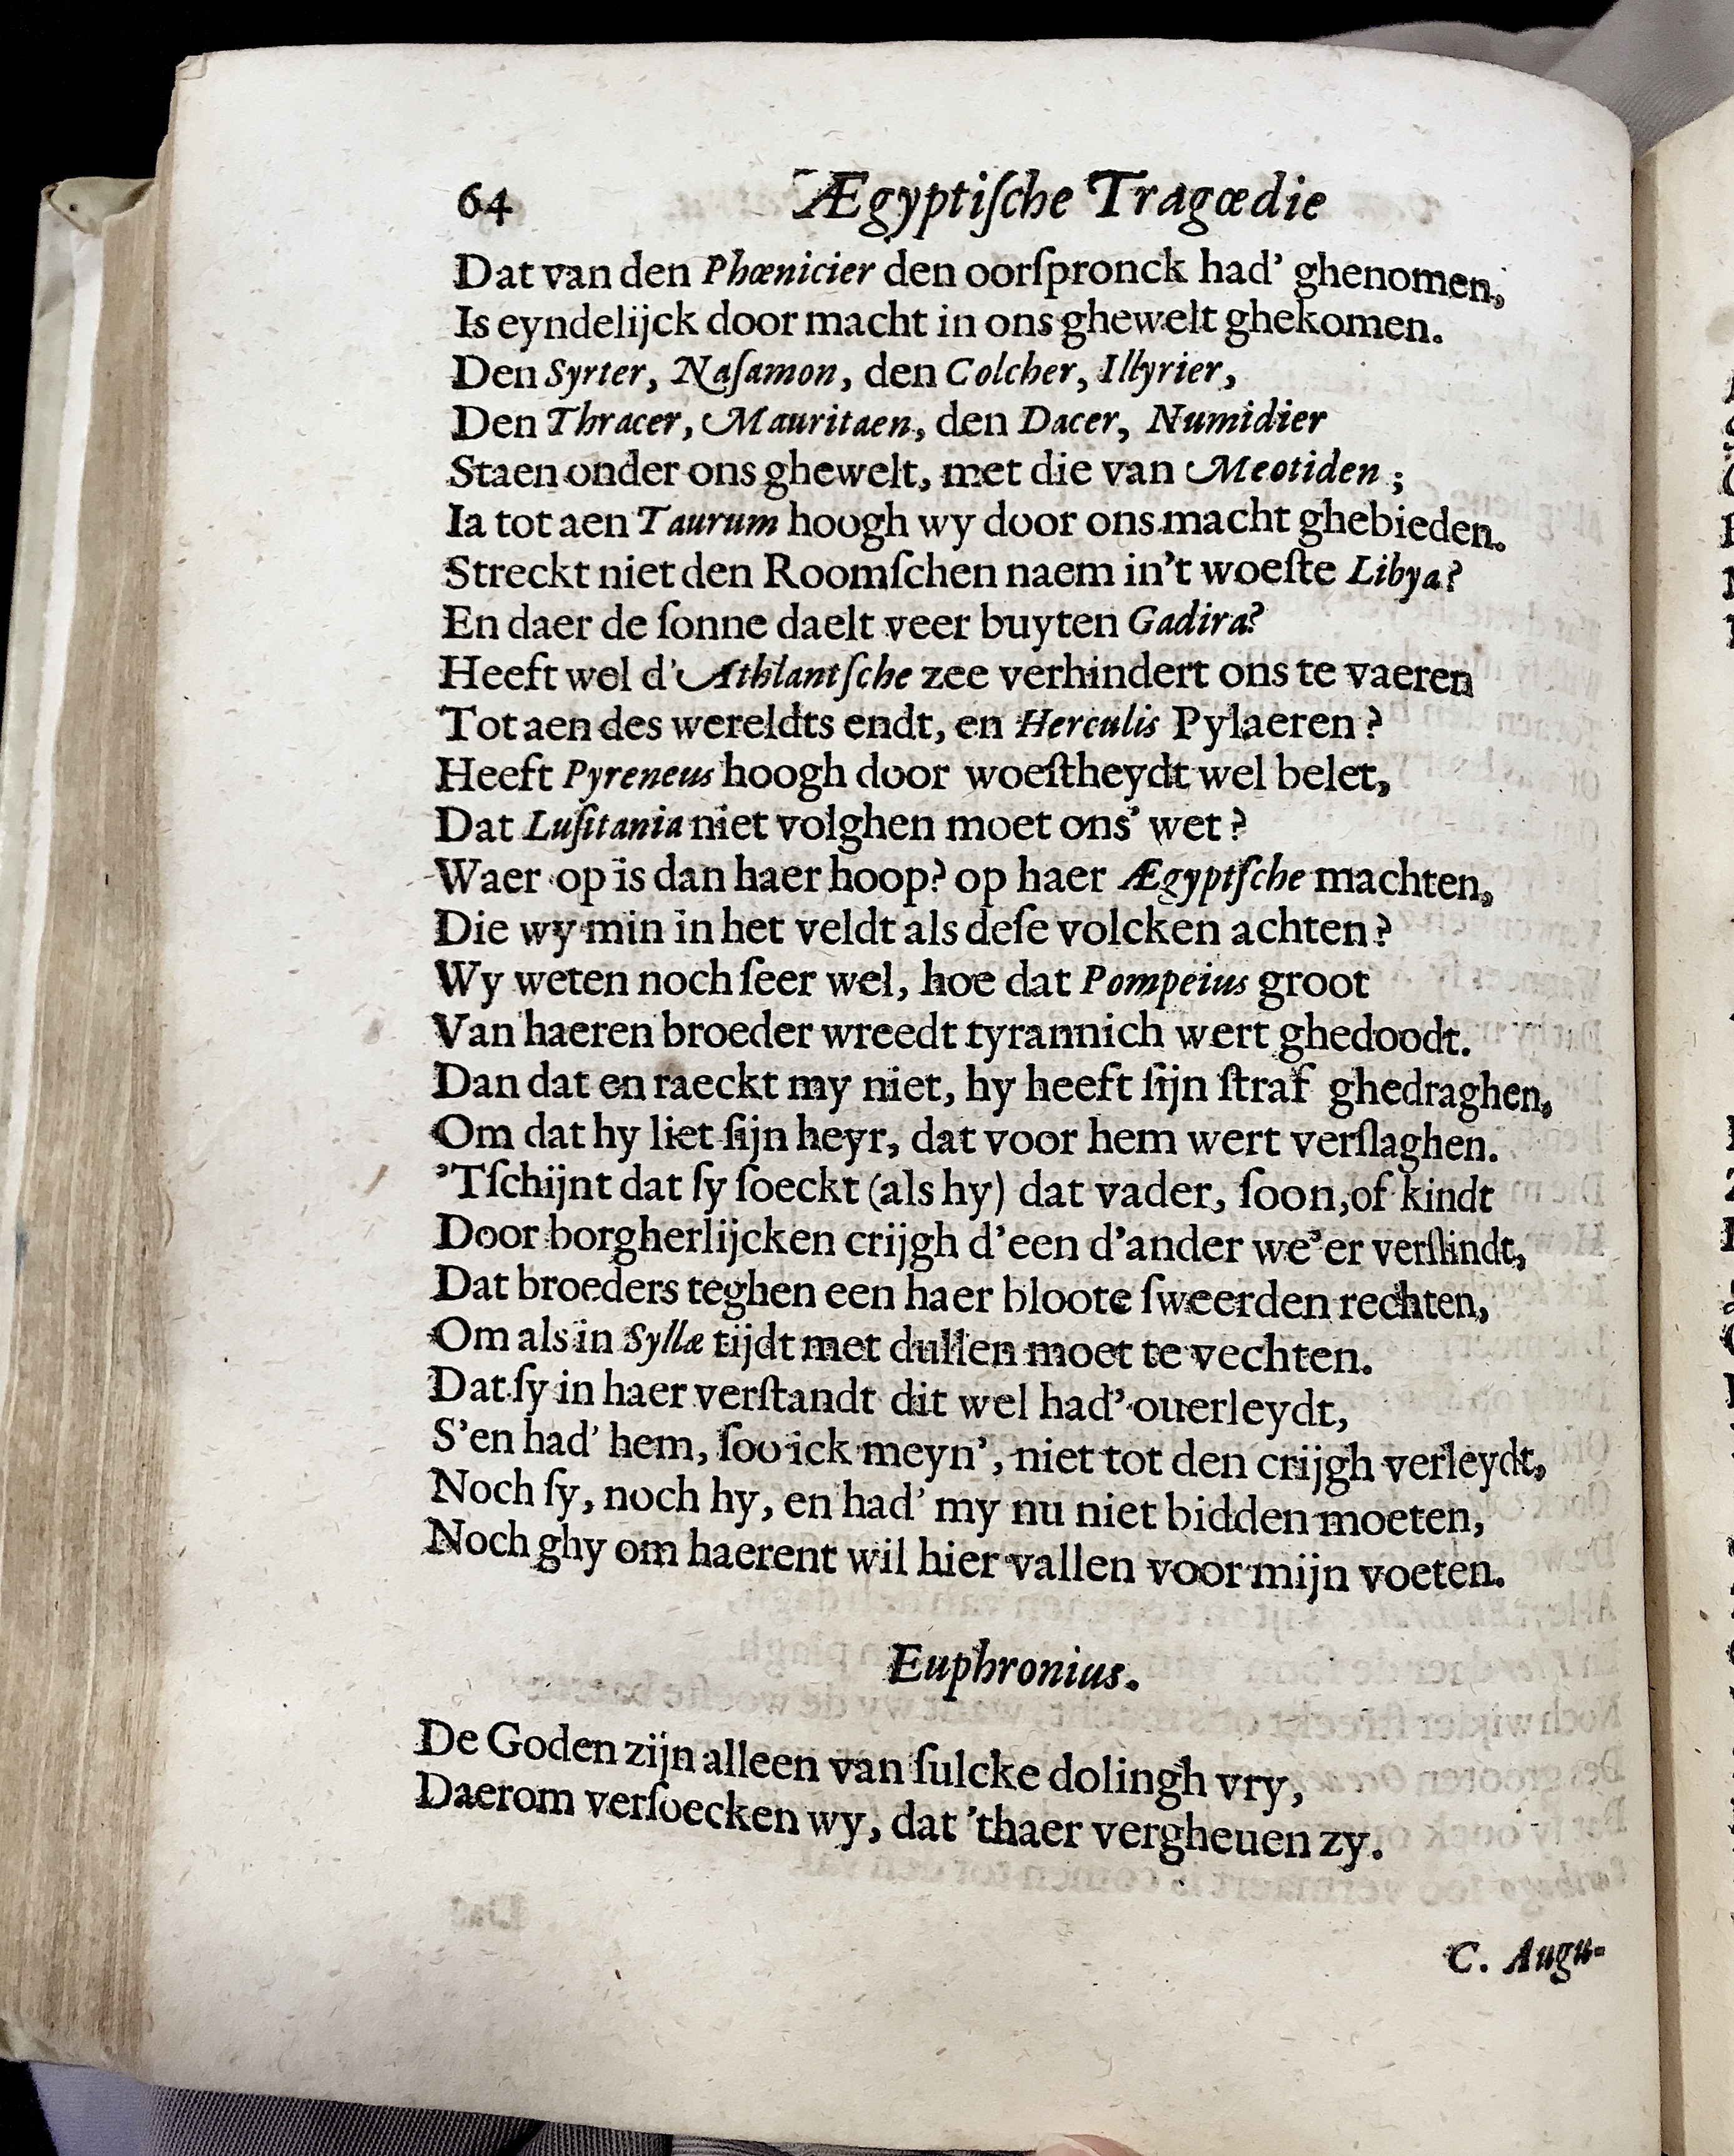 64 Ægyptiſche Tragœdie
Dat van den Phœnicier den oorſpronck had’ ghenomen,
Is eyndelijck door macht in ons ghewelt ghekomen.
Den Syrter, Naſamon, den Colcher, Illyrier,
Den Thracer, Mauritaen, den Dacer, Numidier
Staen onder ons ghewelt, met die van Meotiden ;
Ia tot aen Taurum hoogh wy door ons macht ghebieden.
Streckt niet den Roomſchen naem in’t woeſte Libya?
En daer de ſonne daelt veer buyten Gadira?
Heeft wel d’Athlantſche zee verhindert ons te vaeren
Tot aen des wereldts endt, en Herculis Pylaeren ?
Heeft Pyreneus hoogh door woeſtheydt wel belet,
Dat Luſitania niet volghen moet ons’ wet ?
Waer op is dan haer hoop? op haer Ægyptſche machten,
Die wy min in het veldt als deſe volcken achten ?
Wy weten noch ſeer wel, hoe dat Pompeius groot
Van haeren broeder wreedt tyrannich wert ghedoodt.
Dan dat en raeckt my niet, hy heeft ſijn ſtraf ghedraghen,
Om dat hy liet ſijn heyr, dat voor hem wert verſlaghen.
’Tſchijnt dat ſy ſoeckt (als hy) dat vader, ſoon, of kindt
Door borgherlijcken crijgh d’een d’ander we’er verſlindt,
Dat broeders teghen een haer bloote ſweerden rechten,
Om als in Syllæ tijdt met dullen moet te vechten.
Dat ſy in haer verſtandt dit wel had’ ouerleydt,
S’en had’ hem, ſoo ick meyn’, niet tot den crijgh verleydt,
Noch ſy, noch hy, en had’ my nu niet bidden moeten,
Noch ghy om haerent wil hier vallen voor mijn voeten.
Euphronius.
De Goden zijn alleen van ſulcke dolingh vry,
Daerom verſoecken wy, dat ’thaer vergheuen zy.
C. Augu-